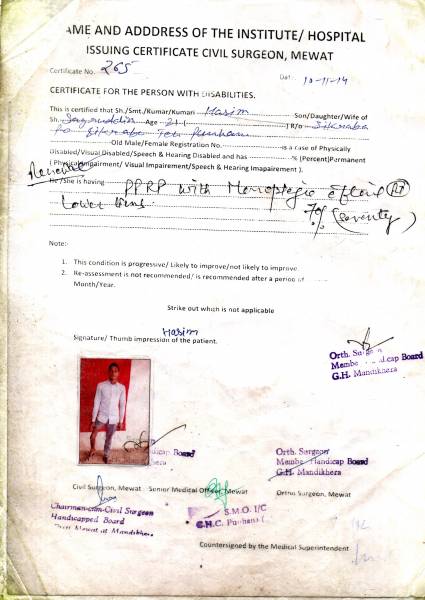 AME AND ADDDRESS OF THE INSTITUTE/ HOSPITAL
ISSUING CERTIFICATE CIVIL SURGEON, MEWAT
Certificate No. 265
Dat 10-11-14
CERTIFICATE FOR THE PERSON WITH DISABILITIES.
This is certified that Sh./Smt./Kumar/Kumari Hasim Son/Daughter/Wife of
Sh. Age 21 ( ) R/o
Old Male/Female Registration No. is a case of Physically
Disabled/Visual Disabled/Speech & Hearing Disabled and has % (Percent)Permanent
( Physical Impairment/ Visual Impairment/Speech & Hearing Imapairement ).
He/She is having PPRP with Monoplegic Rt
Lower limb 70% (seventy)
Note:-
1. This condition is progressive/ Likely to improve/not likely to improve.
2. Re-assessment is not recommended/ is recommended after a period of
Month/Year.
Strike out which is not applicable
Hasim
Signature/ Thumb impression of the patient.
Orth. Surgeon
Membe dicap Board
G.H. Mandikhera
dicap Board
Orth. Surgeon
Membe Handicap Board
G.H. Mandikhera
Civil Surgeon, Mewat Senior Medical Officer, Mewat Ortho Surgeon, Mewat
Chairman-cum-Civil Surgeon
Handicapped Board
Mewat at Mandikhera
S.M.O. I/C
C.H.C. Punhana (
Countersigned by the Medical Superintendent